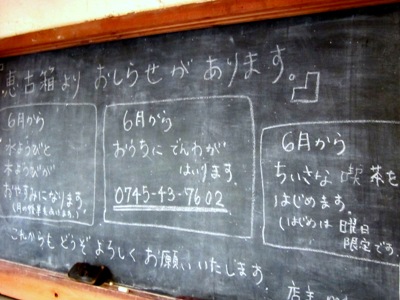 「恵古箱より おしらせがあります。」
6月から
水ようびと
木ようびが
おやすみになります
6月から
おうちに でんわが
はいります。
0745-43-7602
6月から
ちいさな 喫茶を
はじめます。
(はじめは 日曜日
限定です
これからも どうぞ よろしく お願いいたします。
店主